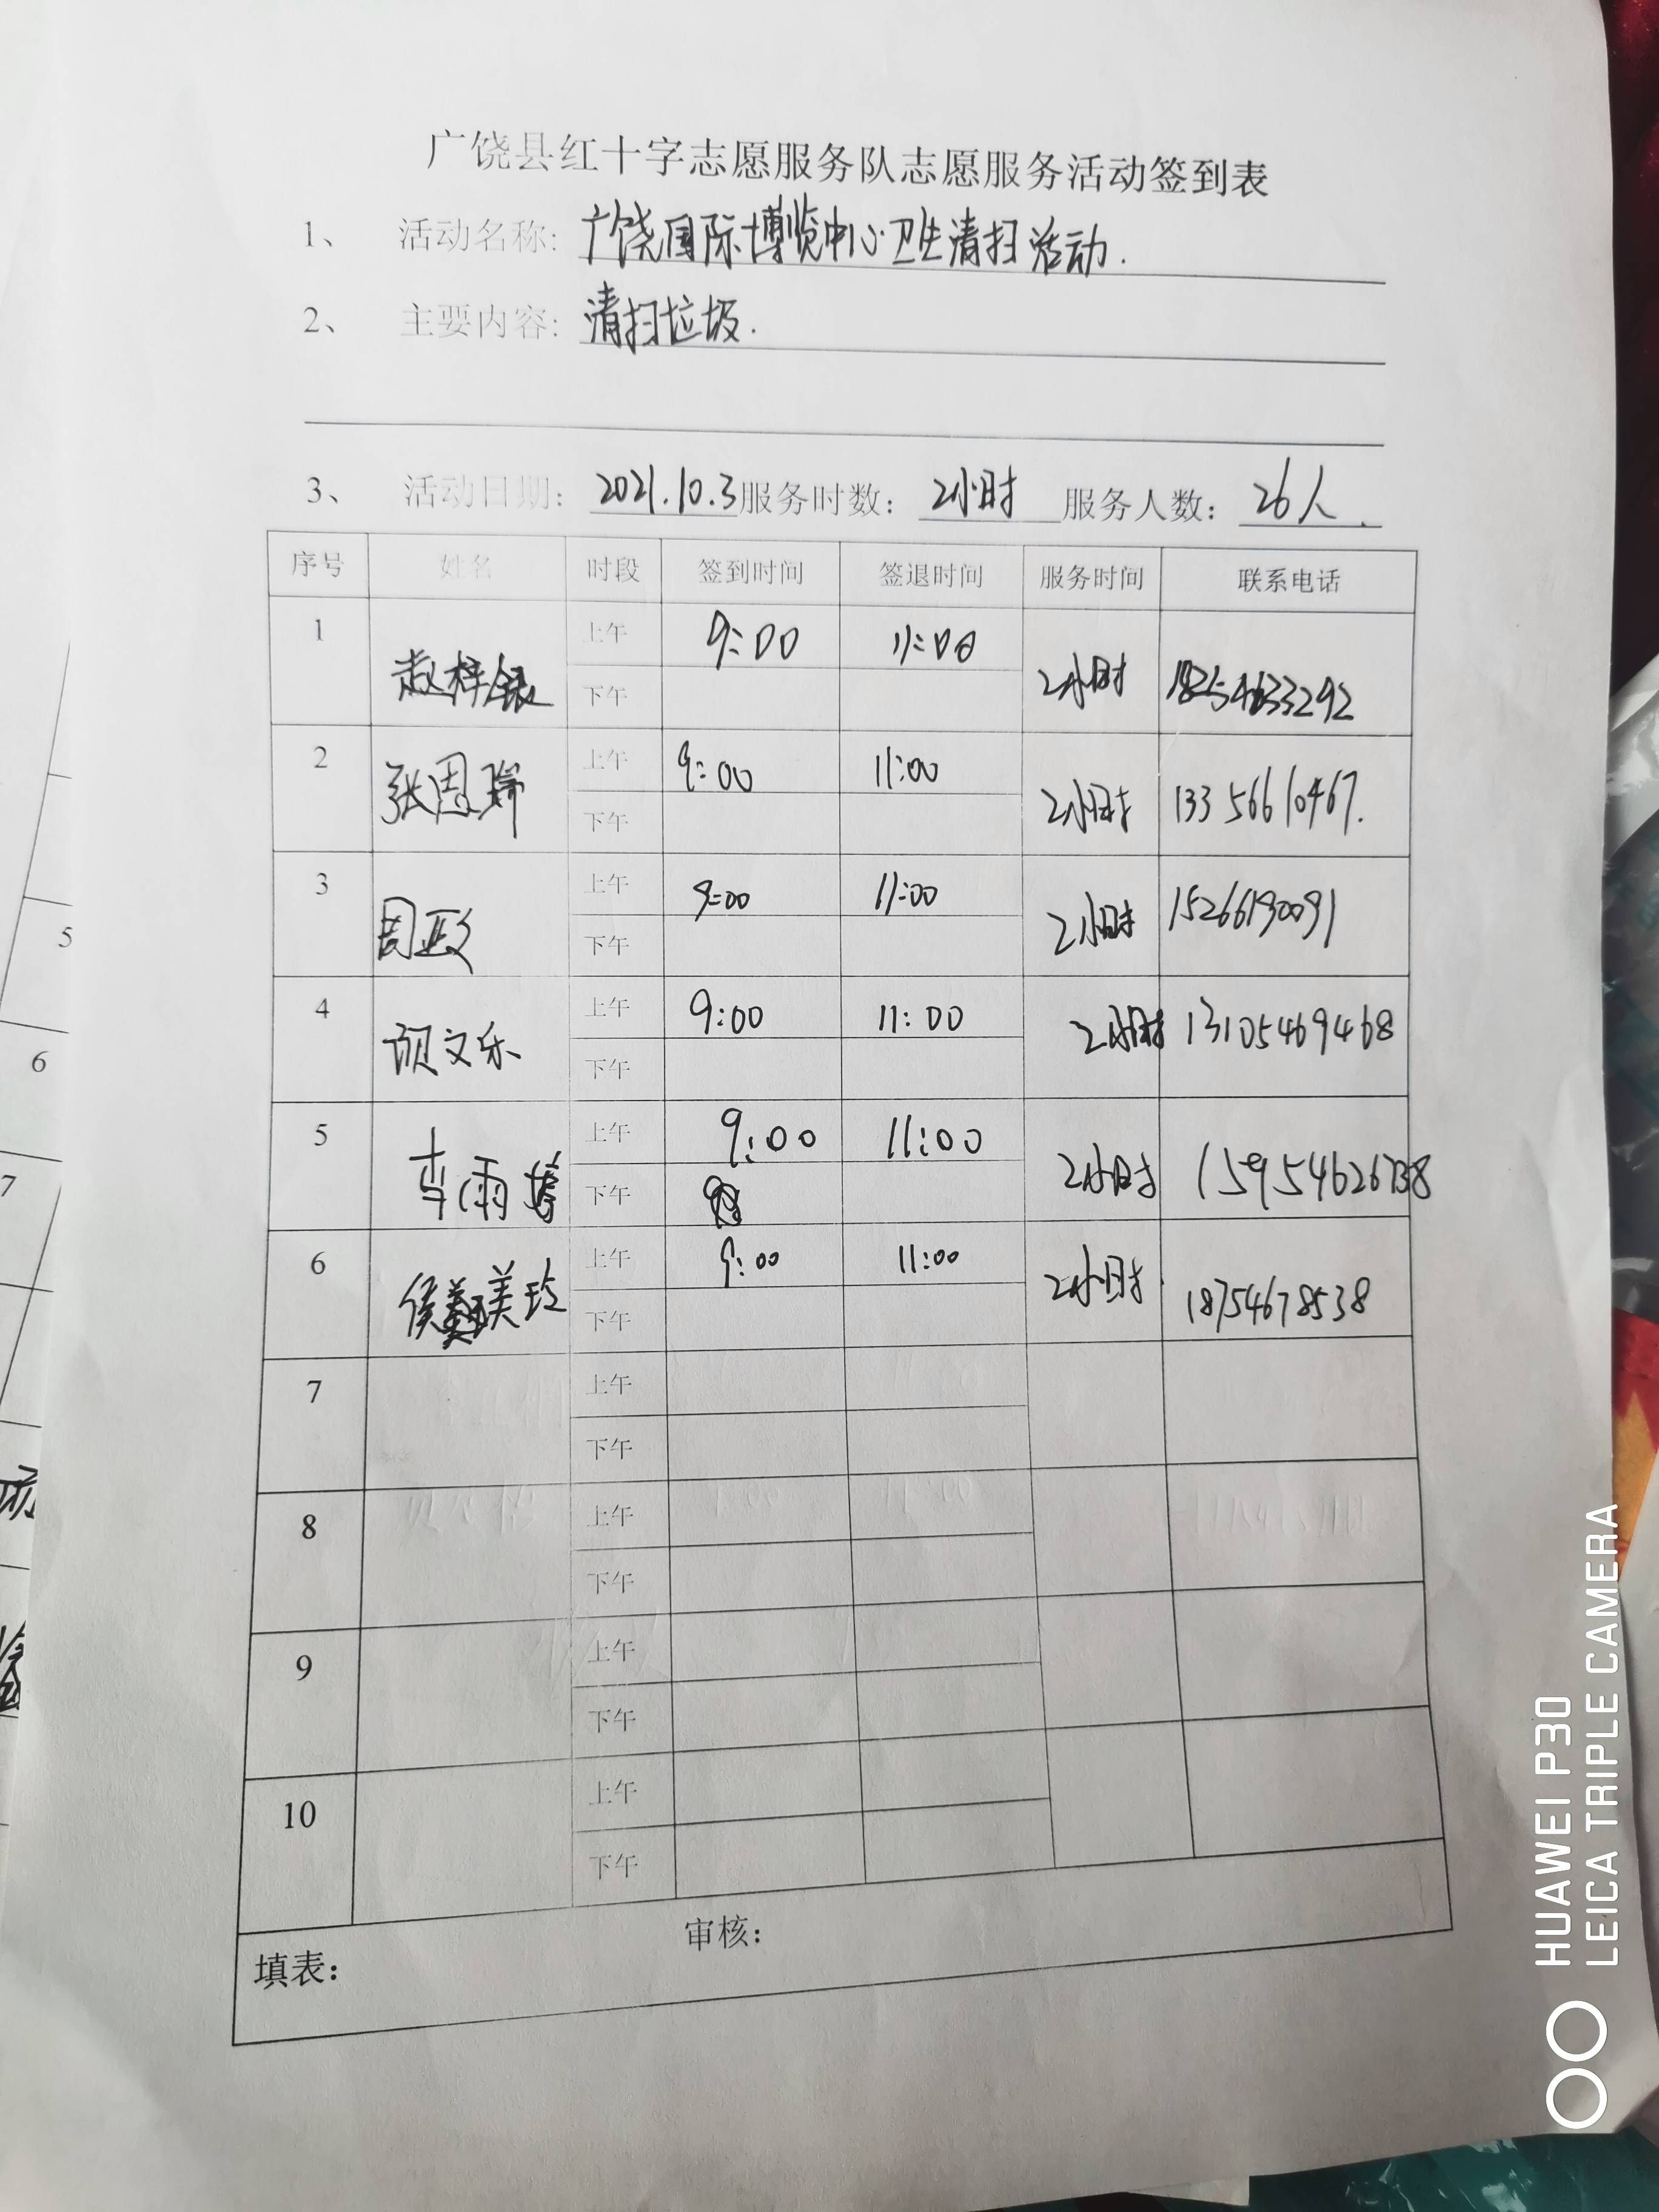 广饶县红十字志愿服务队志愿服务活动签到表
1、 活动名称: 广饶国际博览中心卫生清扫活动.
2、 主要内容: 清扫垃圾.
3、 活动日期: 2021.10.3 服务时数: 2小时 服务人数: 26人.
序号 姓名 时段 签到时间 签退时间 服务时间 联系电话
1 赵梓 上午 9:00 11:00 2小时 18254633292
下午
2 张恩瑞 上午 9:00 11:00 2小时 13356610467.
下午
3 周正 上午 9:00 11:00 2小时 15266190091
下午
4 颀文乐 上午 9:00 11:00 2小时 13105469468
下午
5 李雨 上午 9:00 11:00 2小时 15954626738
下午
6 侯美玲 上午 9:00 11:00 2小时 18754678538
下午
7 上午
下午
8 上午
下午
9 上午
下午
10 上午
下午
填表: 审核:
5
6
7
动
HUAWEI P30
LEICA TRIPLE CAMERA